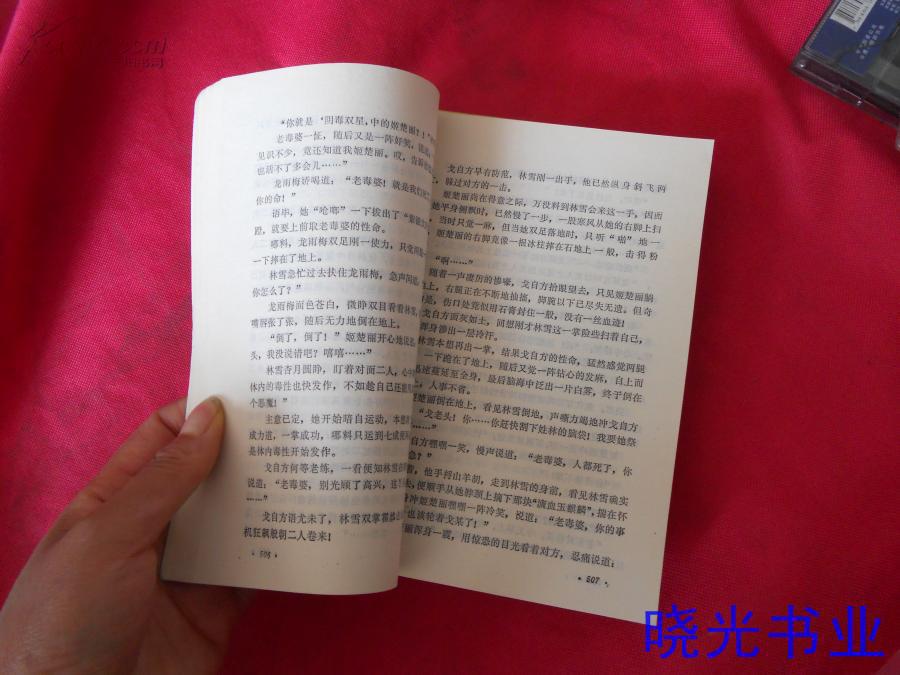 “你就是‘阴毒双星，中的姬楚丽？！”
老毒婆一怔，随后又是一阵好笑，
见识不少，竟还知道我姬楚丽。哎，告诉
也活不了多会儿……”
龙雨梅娇喝道：“老毒婆！就是我们死
你的命！”
语毕，她“呛啷”一下拔出了
蹬，就要上前取老毒婆的性命。
哪料，龙雨梅双足刚一使力，只觉
一下摔在了地上。
林雪急忙过去扶住龙雨梅，急声问道
你怎么了？”
龙雨梅面色苍白，微睁双目看看林雪，
嘴唇张了张，随后无力地倒在地上。
“倒了，倒了！”姬楚丽开心地说
头，我没说错吧？嘻嘻……”
林雪杏月圆睁，盯着对面二人，心中
体内的毒性也快发作，不如趁自己还能
个恶魔！”
主意已定，她开始暗自运动，本想
成力道，一掌成功，哪料只运到七成
是体内毒性开始发作。
戈自方何等老练，一看便知林雪在
说道：“老毒婆，别光顾了高兴，这
……”
戈自方语尤未了，林雪双掌霍然
机狂飙般朝二人卷来！
· 506 ·
戈自方早有防范，林雪刚一出手，他已然纵身斜飞两
，躲过对方的一击。
姬楚丽尚在得意之际，万没料到林雪会来这一手，因而
她平身侧飘时，已然慢了一步，一股寒风从她的右脚上扫
当时只觉一麻，但当她双足落地时，只听“啪”地一
姬楚丽的右脚竟像一根冰柱摔在石地上一般，击得粉
“啊……”
随着一声凄厉的惨嚎，戈自方抬眼望去，只见姬楚丽躺
上，右腿正在不断地抽搐，脚腕以下已尽失无遗。但奇
是，伤口处竟似用石膏封住一般，没有一丝血迹！
戈自方面灰如土，回想刚才林雪这一掌险些扫着自己，
浑身渗出一层冷汗。
林雪本想再出一掌，结果戈自方的性命，猛然感觉两腿
一下跪在了地上，随后又觉一阵钻心的发麻，自上而
迅速蔓延至全身，最后脑海中泛出一片白雾，终于倒在
，人事不省。
楚丽倒在地上，看见林雪倒地，声嘶力竭地冲戈自方
“戈老头！你……你赶快割下姓林的脑袋！我要她祭
自方嘿嘿一笑，慢声说道：“老毒婆，人都死了，你
急？”
，他手捋山羊胡，走到林雪的身前，看见林雪确实
便顺手从她脖颈上摘下那块“滴血玉麒麟”，揣在怀
身冲姬楚丽嘿嘿一阵冷笑，说道：“老毒婆，你的事
也该轮着戈某了！”
丽浑身一震，用惊恐的目光看着对方，忍痛说道：
· 507 ·
晓光书业